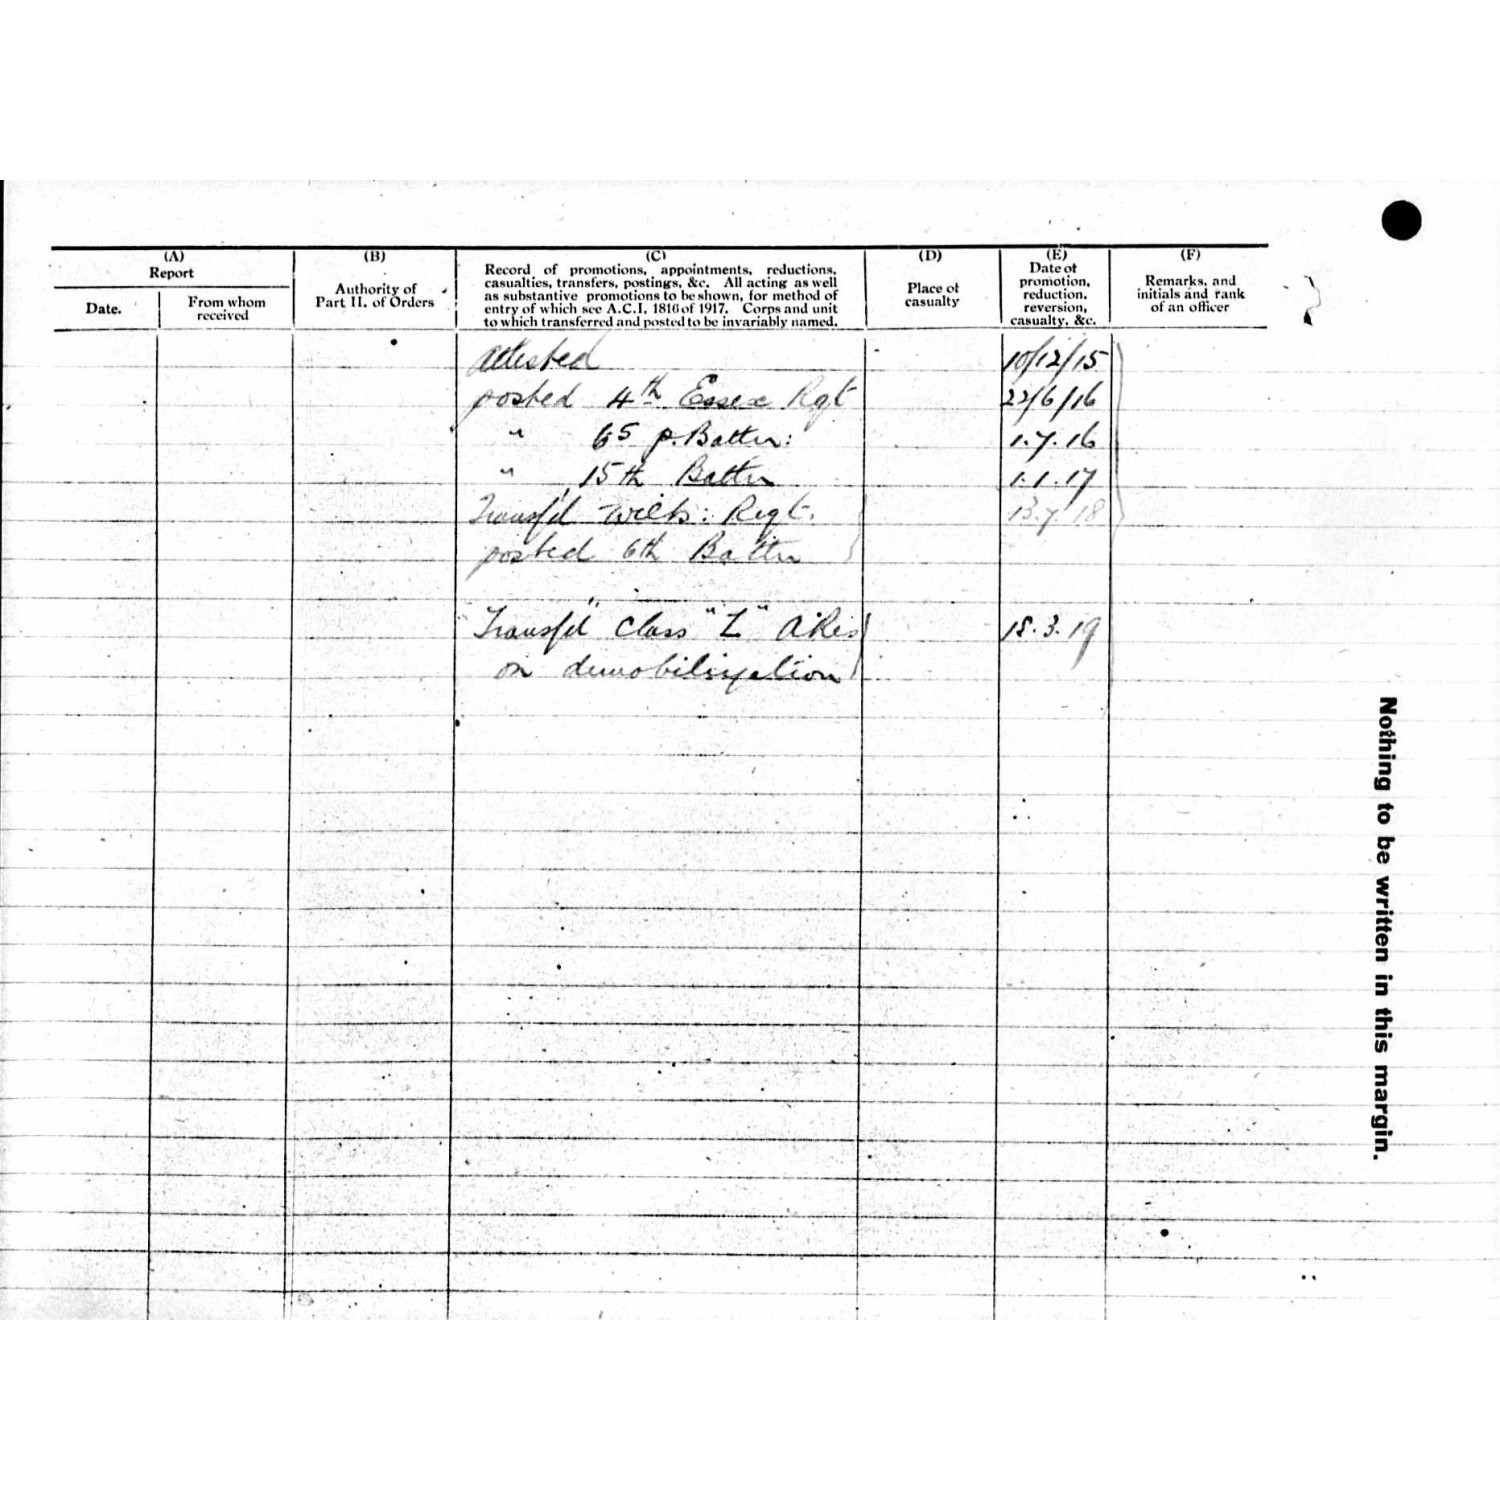 (A)
Report
Date.
From whom
received
(B)
Authority of
Part II. of Orders
(C)
Record of promotions, appointments, reductions,
casualties, transfers, postings, &c. All acting as well
as substantive promotions to be shown, for method of
entry of which see A.C.I. 1816 of 1917. Corps and unit
to which transferred and posted to be invariably named.
(D)
Place of
casualty
(E)
Date of
promotion,
reduction,
reversion,
casualty, &c.
(F)
Remarks, and
initials and rank
of an officer
Attested 10/12/15
posted 4th Essex Rgt 22/6/16
" 65 p. Battn: 1.7.16
" 15th Battn 1.1.17
Transf'd Wilts: Regt. 13.7.18
posted 6th Battn
Transf'd Class "Z" ARes 18.3.19
on demobilization
Nothing to be written in this margin.